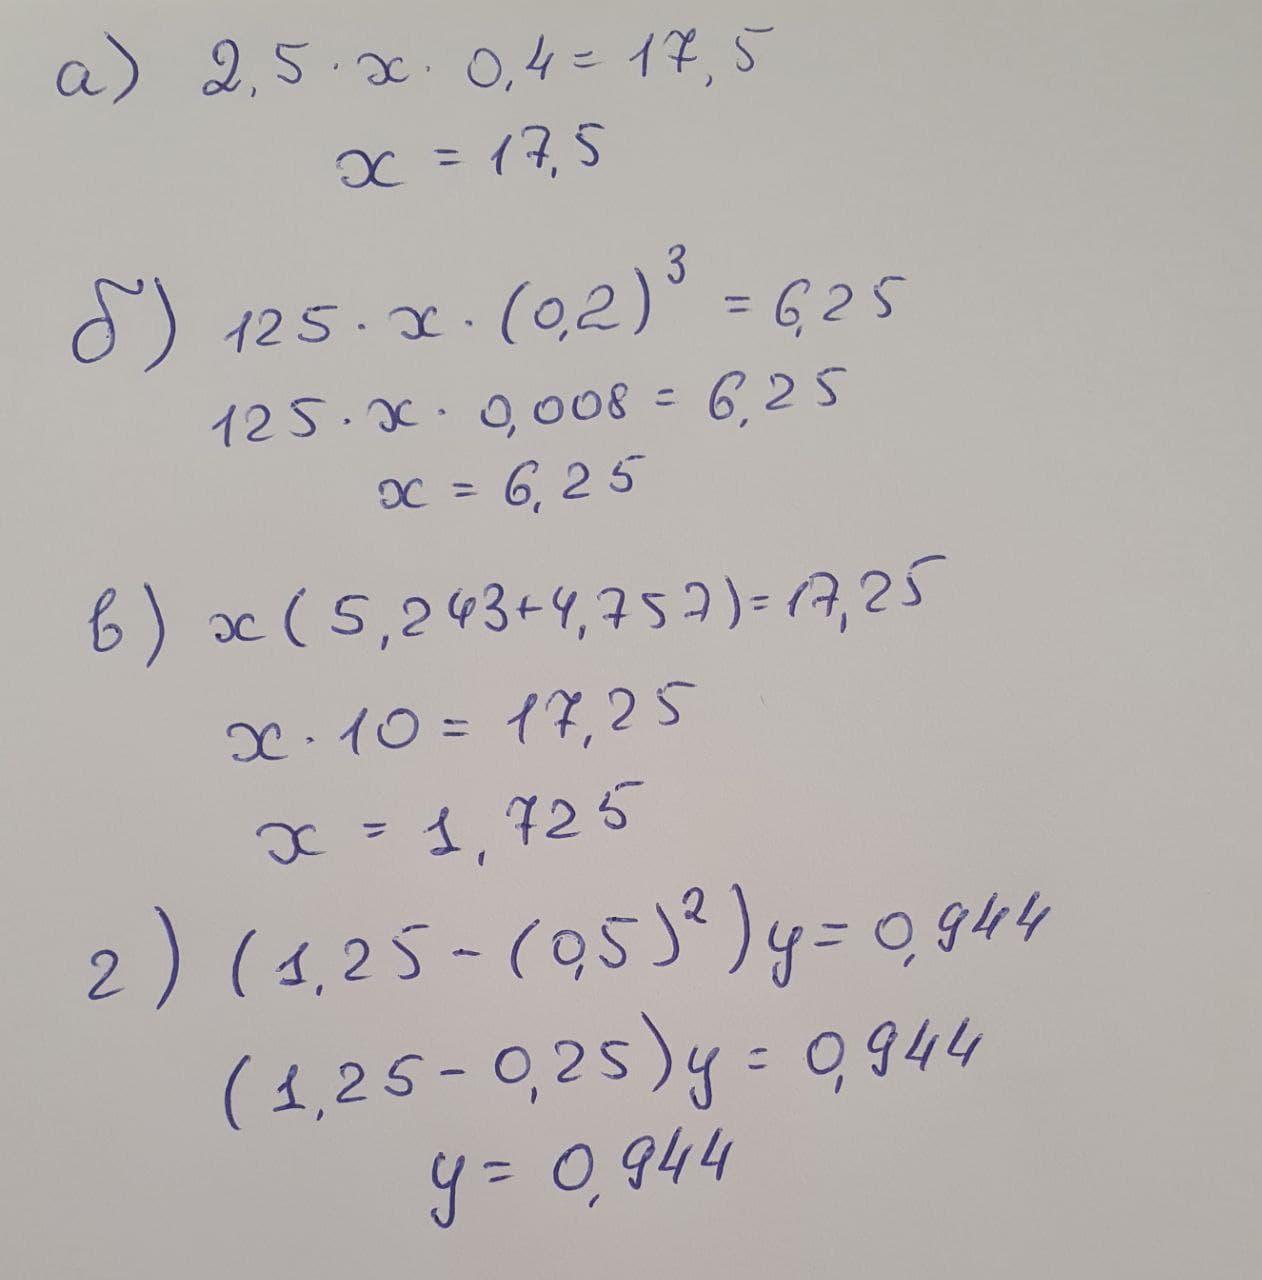 а) 2,5 · x · 0,4 = 17,5
x = 17,5
б) 125 · x · (0,2)³ = 6,25
125 · x · 0,008 = 6,25
x = 6,25
в) x (5,243+4,757) = 17,25
x · 10 = 17,25
x = 1,725
г) (1,25 - (0,5)²) y = 0,944
(1,25 - 0,25) y = 0,944
y = 0,944